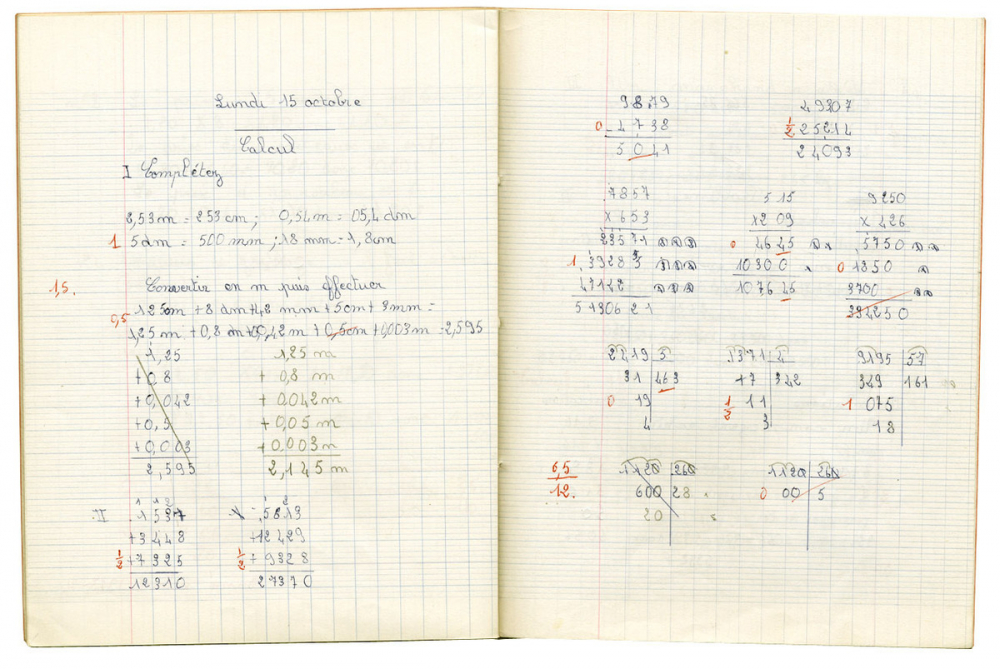 Lundi 15 octobre
Calcul
I Complétez
2,53 m = 253 cm ; 0,54 m = 05,4 dm
1 5 dm = 500 mm ; 18 mm = 1,8 cm
1,5. Convertir en m puis effectuer
0,5 125cm + 8 dm + 42 mm + 5cm + 3mm =
1,25 m + 0,8 m + 0,042 m + 0,5cm + 0,003 m = 2,595
1,25
+0,8
+0,042
+0,5
+0,003
2,595
1,25 m
+ 0,8 m
+ 0,042 m
+ 0,05 m
+ 0,003 m
2,145 m
II
1 537
+3 448
1/2 +7 325
12310
5813
+12 429
1/2 + 9328
27370
9879
0 - 4738
5041
49307
1/2 25214
24093
7857
x 653
23571
1. 39285
47142
5130621
515
x209
0 4645
10300
107645
9250
x 426
5750
0 1850
3700
394250
2319 5
31 463
0 19
4
1371 4
+7 342
1/2 11
3
9195 57
349 161
1 075
18
6,5
12.
1120 260
600 28
20
1120 260
0 00 5